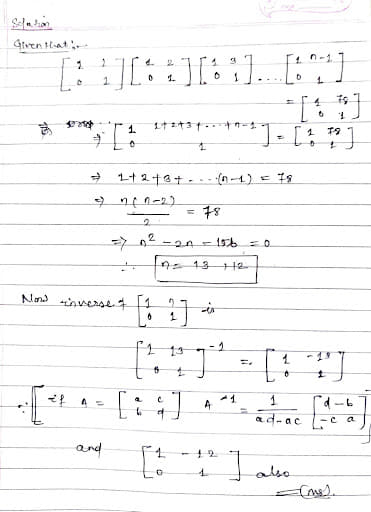 Solution
Given that :-
[1 1 0 1] [1 2 0 1] [1 3 0 1] .... [1 n-1 0 1]
= [1 78 0 1]
⇒ [1 1+2+3+....+n-1 0 1] = [1 78 0 1]
⇒ 1+2+3+....(n-1) = 78
⇒ n(n-2) / 2 = 78
⇒ n² - 2n - 156 = 0
∴ n = 13, +12
Now inverse of [1 n 0 1] is
[1 13 0 1]⁻¹ = [1 -13 0 1]
∵ [if A = [a c b d] A⁻¹ = 1/ad-ac [d -b -c a]
and [1 -12 0 1] also
(Ans).